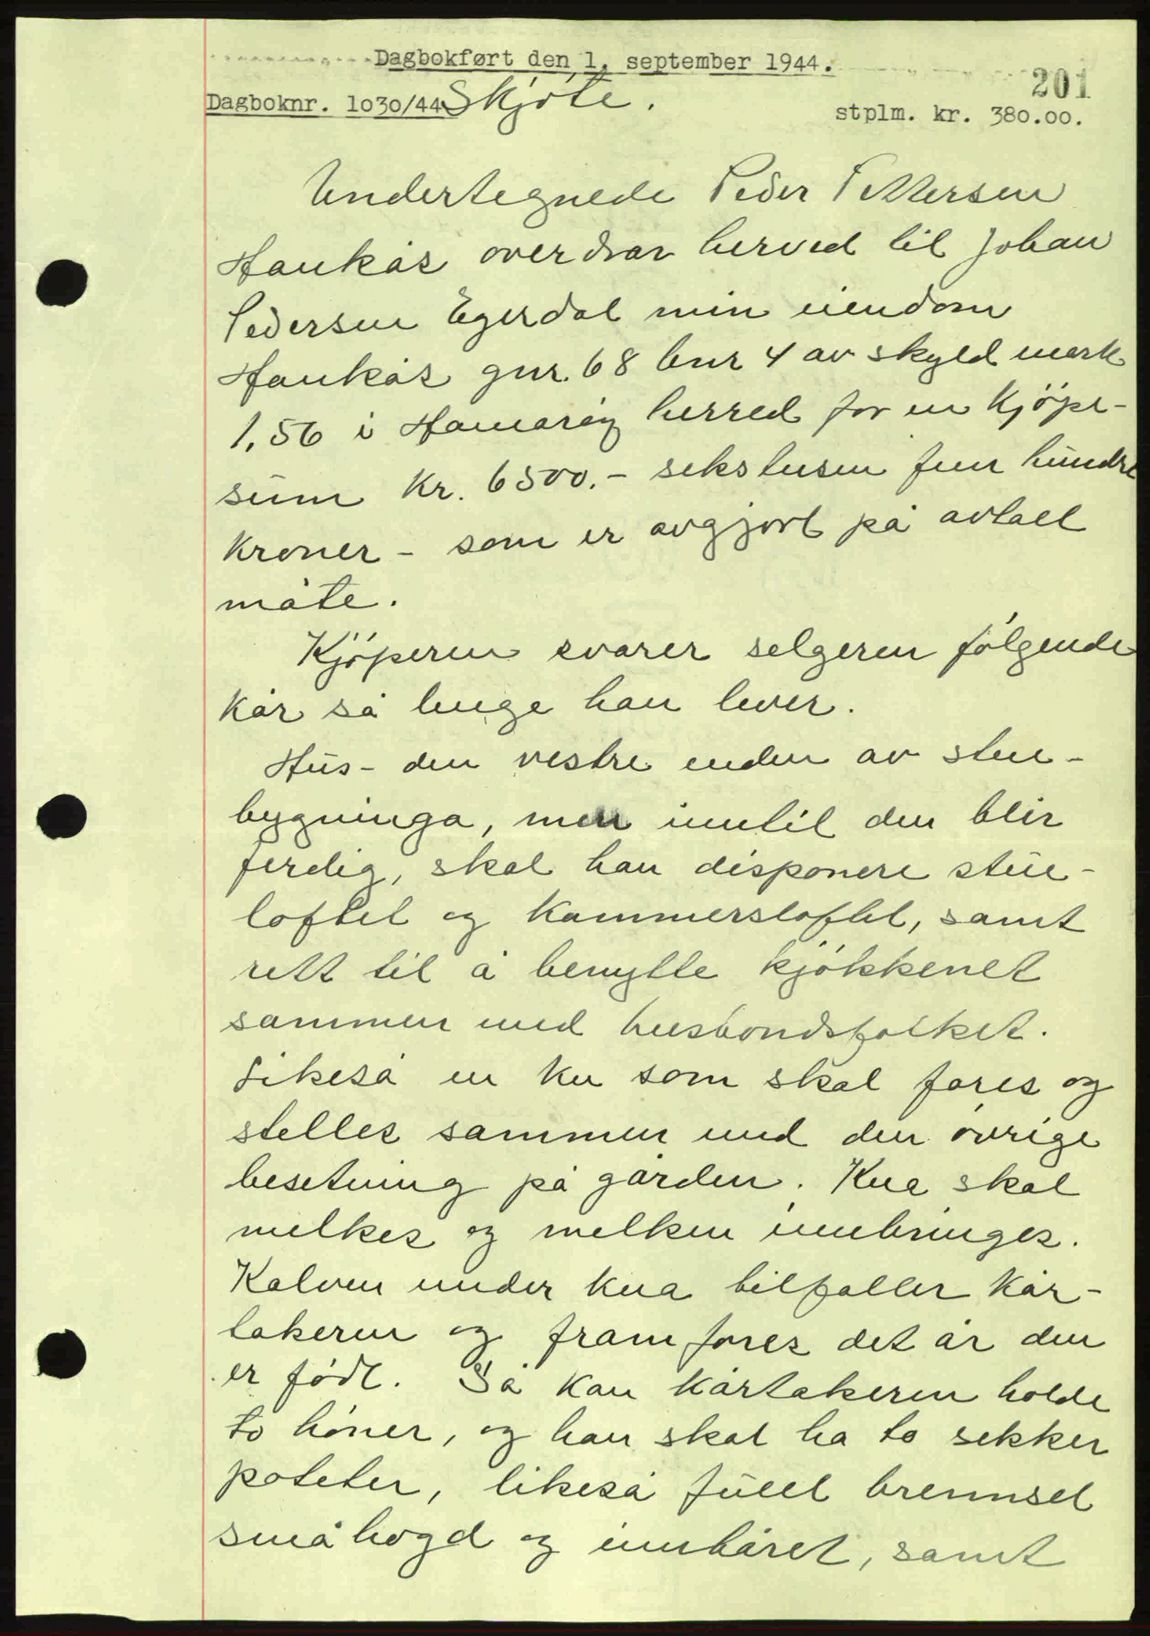 Dagbokført den 1. september 1944.
201
Dagboknr. 1030/44 Skjöte.
stplm. kr. 380.00.
Undertegnede Peder Pettersen
Haukås overdrar herved til Johan
Pedersen Egerdal min eiendom
Haukås gnr. 68 bnr 4 av skyld mark
1,56 i Hamarøy herred for en kjöpe-
sum kr. 6500.- sekstusen fem hundre
kroner - som er avgjort på avtalt
måte.
Kjöperen svarer selgeren fölgende
kår så lenge han lever.
Hus - den vestre enden av stue-
bygninga, men inntil den blir
ferdig, skal han disponere stue-
loftet og kammersloftet, samt
rett til å benytte kjökkenet
sammen med husbondsfolket.
Likeså en ku som skal fores og
stelles sammen med den övrige
besetning på gården. Kua skal
melkes og melken innbringes.
Kalven under kua tilfaller kår-
takeren og framfores det år den
er födt. Så kan kårtakeren holde
to höner, og han skal ha to sekker
poteter, likeså fullt brennsel
småhogd og innbåret, samt